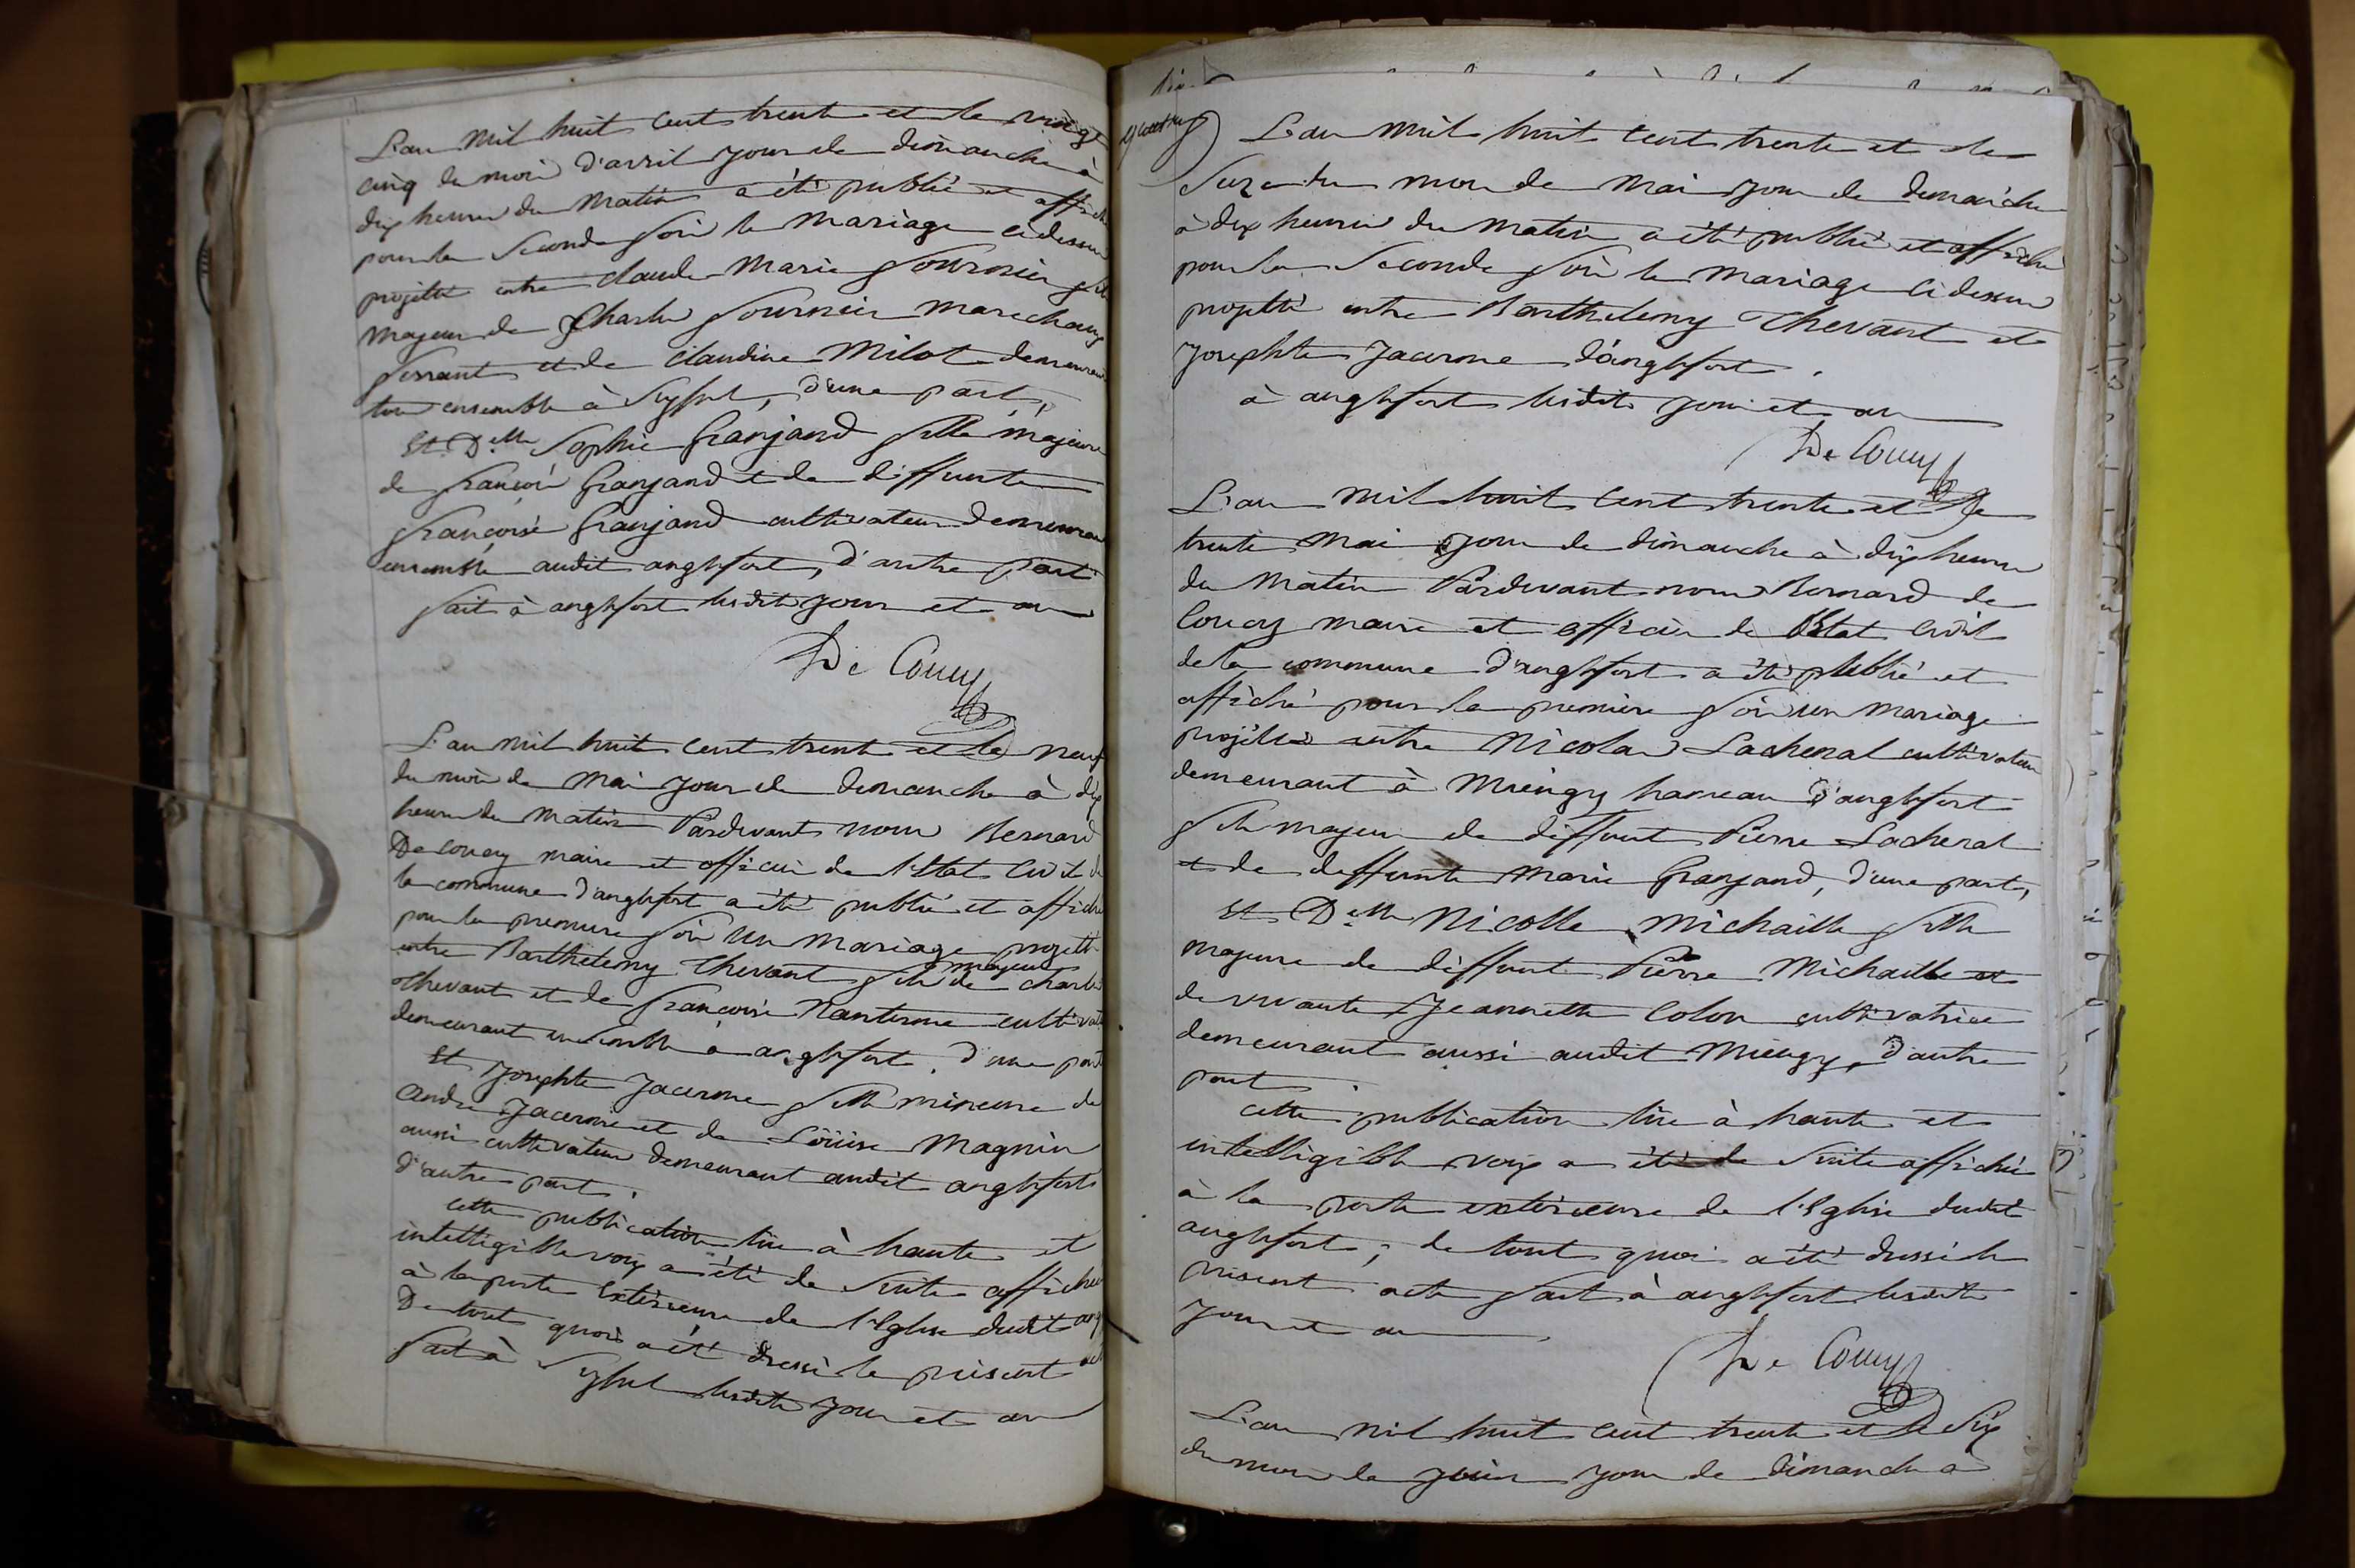 L'an mil huit cent trente et le vingt
cinq du mois d'avril jour de dimanche à
dix heures du matin a été publié et affiché
pour la seconde fois le mariage ci dessus
projetté entre claude Marie fournier fils
majeur de Charles fournier marechaux
ferrant et de claudine Milot demeurant
tous ensemble à Seyssel, d'une part,
Et D.elle Sophie Granjand fille majeure
de françois Granjand et de deffunte
françoise Granjand cultivateur demeurant
ensemble audit anglefort, d'autre part
fait à anglefort lesdits jour et an
De Coucy
L'an mil huit cent trent et le neuf
du mois de Mai jour de dimanche à dix
heures du matin Pardevant nous Bernard
De Coucy maire et officier de l'Etat Civil de
la commune d'anglefort a été publié et affiché
pour la premiere fois un mariage projetté
majeur
entre Barthelemy Thevant fils de charles
Thevant et de françoise Nanterme cultivat
demeurant ensemble à anglefort, d'une part
Et Josephte Jacerme fille mineure de
André Jacerme et de Loüise Magnin
aussi cultivateurs demeurant audit anglefort
d'autre part.
cette publication lue à haute et
intelligible voix a été de suite affichée
à la porte exterieure de l'Eglise dudit ang
De tout quoi a été dressé le présent act
fait à Seyssel lesdits jour et an
L'an mil huit cent trente et le
Seize du mois de Mai jour de dimanche
à dix heures du matin a été publié et affiché
pour la seconde fois le mariage ci dessus
projetté entre Barthelemy Thevant et
Josephte Jacerme d'anglefort.
à anglefort lesdits jour et an
De Coucy
L'an mil huit cent trente et le
trente mai jour de dimanche à dix heures
du matin Pardevant nous Bernard de
Coucy maire et officier de l'Etat Civil
de la commune d'anglefort a été publié et
affiché pour la premiere fois un mariage
projetté entre Nicolas Lachenal cultivateur
demeurant à Miengy hameau d'anglefort
fils majeur de deffunt Pierre Lachenal
et de deffunte Marie Granjand, d'une part,
Et D.elle Nicolle Michaille fille
majeure de deffunt Pierre Michaille et
de vivante Jeannette Colon cultivatrice
demeurant aussi audit Miengy, d'autre
part.
cette publication lue à haute et
intelligible voix a été de suite affichée
à la porte extérieure de l'Eglise dudit
anglefort; de tout quoi a été dressé le
présent acte fait à anglefort lesdits
jour et an
De Coucy
L'an mil huit cent trente et le Six
du mois de juin jour de dimanche à